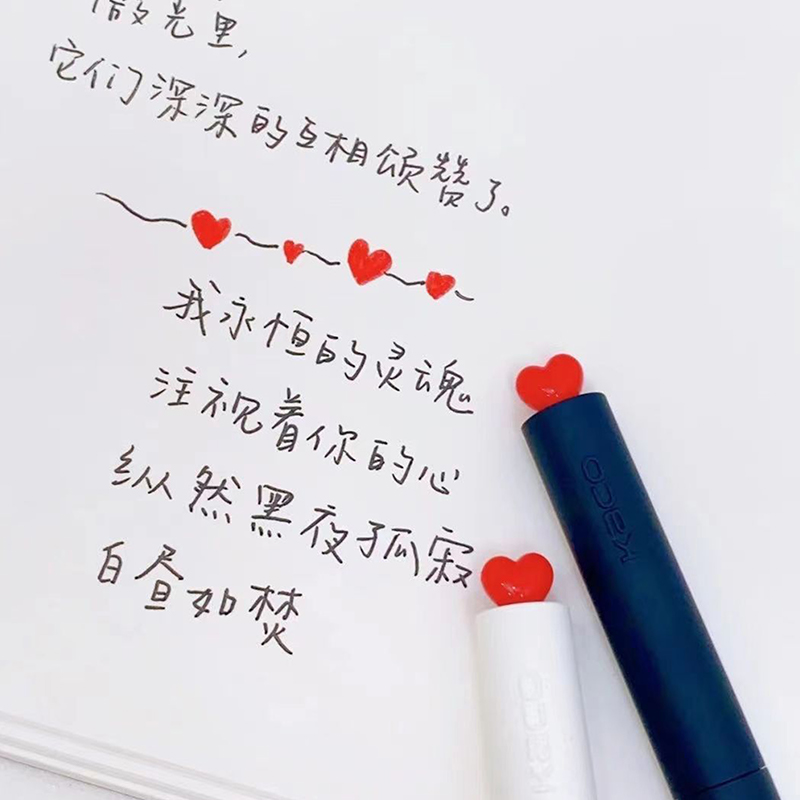 微光里,
它们深深的互相颂赞了。
我永恒的灵魂
注视着你的心
纵然黑夜孤寂
白昼如焚
kaco
kaco